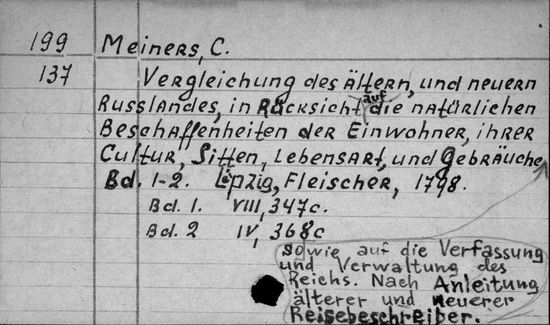 199 Meiners, C.
137 Vergleichung des ältern, und neuern
Russlandes, in Rücksicht auf die natürlichen
Beschaffenheiten der Einwohner, ihrer
Cultur, Sitten, Lebensart, und Gebräuche,
Bd. 1-2. Lipzig, Fleischer, 1798.
Bd. 1. VIII, 347c.
Bd. 2 IV, 368c
sowie auf die Verfassung
und Verwaltung des
Reichs. Nach Anleitung
älterer und neuerer
Reisebeschreiber.